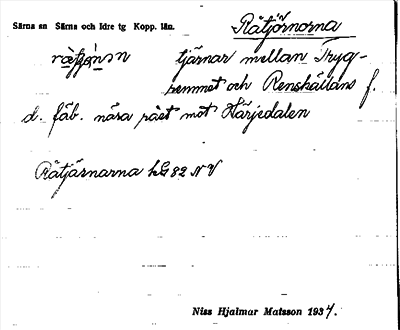 Särna sn Särna och Idre tg Kopp. län.
Råtjörnorna
tjärnar mellan Tryg-
semmet och Renskällans f.
d. fäb. nära rået mot Härjedalen
Råtjärnarna kG 82 NV
Niss Hjalmar Matsson 1934.